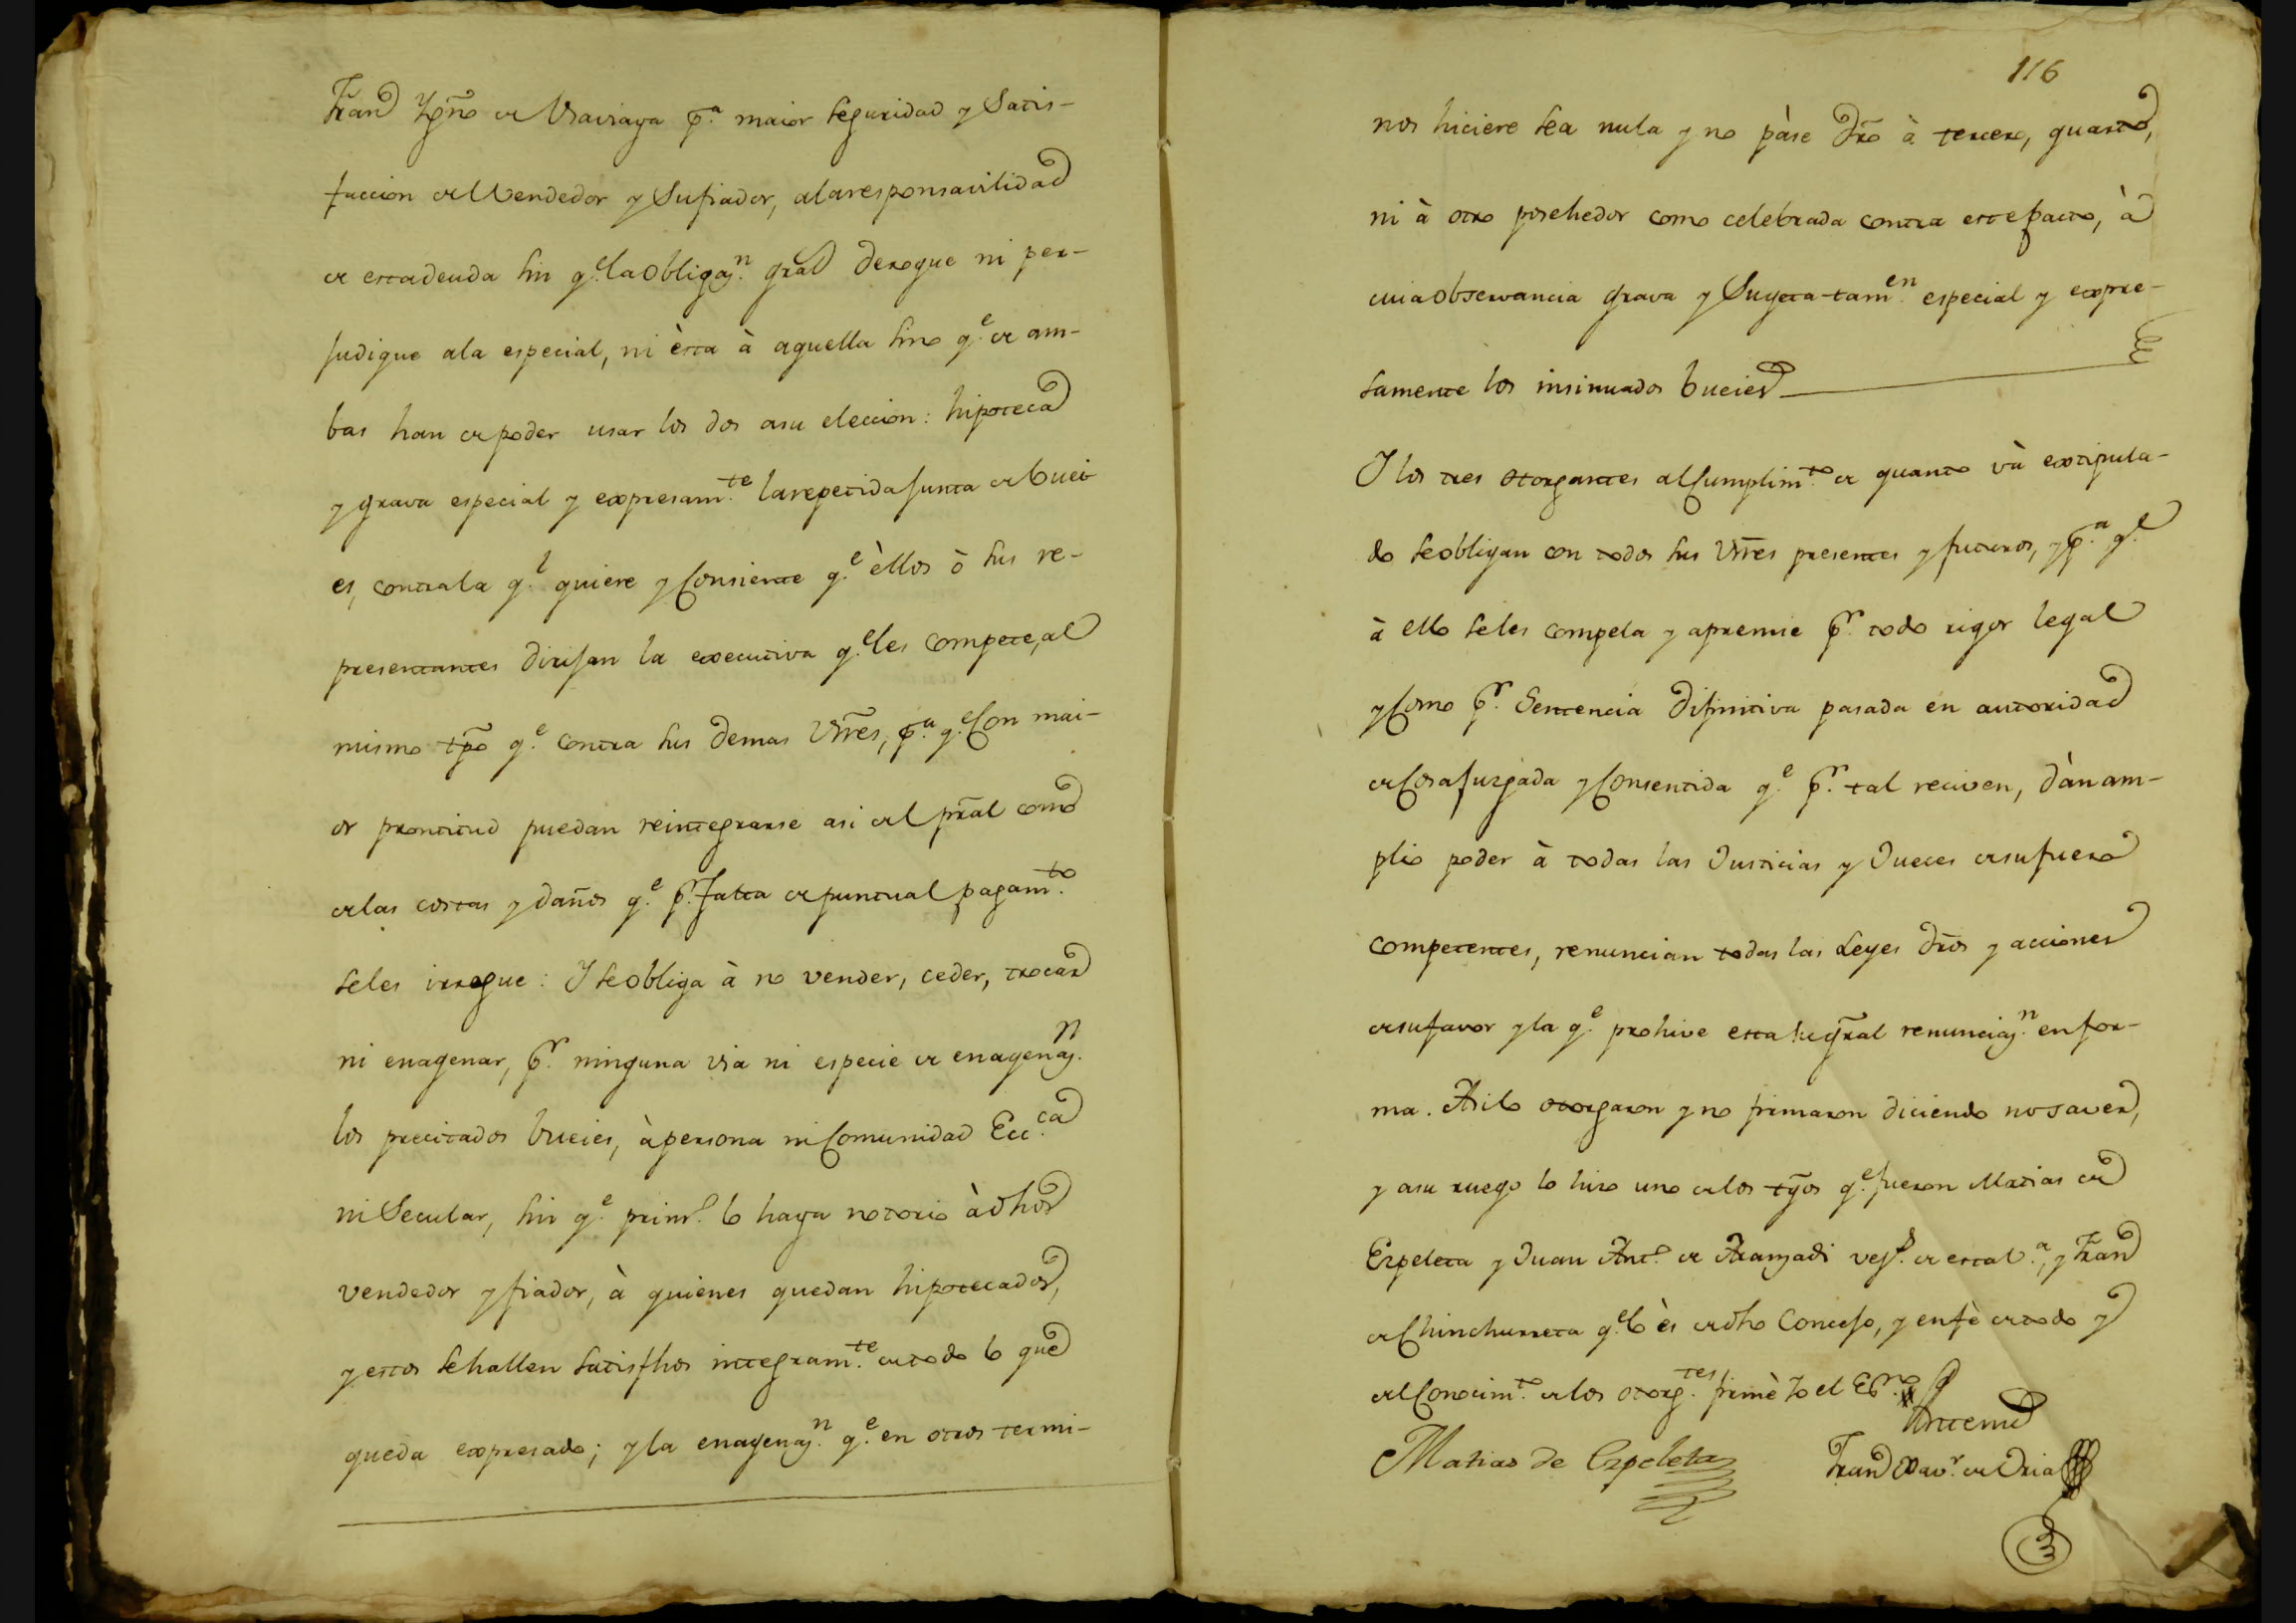 Fran.co Ygn.o de Usaviaga p.a maior seguridad y Satis-
faccion del Vendedor y Sufiador, alaresponsavilidad
de estadeuda sin q.e la Obligaz.n gral derogue ni per-
judique ala especial, ni èsta à aquella sino q.e de am-
bas han de poder usar los dos asu eleccion: hipoteca
y grava especial y expresam.te larepetida junta de buei-
es, contrala q.l quiere y Consiente q.e èllos ò sus re-
presentantes dirijan la executiva q.e les compete, al
mismo tpo q.e contra sus demas Vnes, p.a q.e Con mai-
or prontitud puedan reintegrarse asi del pral como
delas costas y daños q.e p.r falta de puntual pagam.to
seles irrogue: Y seobliga à no vender, ceder, trocar
ni enagenar, p.r ninguna via ni especie de enagenaz.n
los precitados bueies, à persona ni Comunidad Ecc.ca
ni Secular, sin q.e prim.o lo haga notorio à dhos
vendedor y fiador, à quienes quedan hipotecados,
y estos sehallen satisfhos integram.te de todo lo que
queda expresado; y la enagenaz.n q.e en otros termi-
116
nos hiciere sea nula y no pàse dro à tercero, quarto,
ni à otro posehedor como celebrada contra este pacto, à
cuia observancia grava y Sugeta tam.en especial y expre-
samente los insinuados bueies
Y los tres otorgantes al Cumplim.to de quanto và extipula-
do seobligan con todos sus Vnes presentes y futuros, y p.a q.e
à ello seles compela y apremie p.r todo rigor legal
y Como p.r Sentencia difinitiva pasada en autoridad
de Cosa juzgada y Consentida q.e p.r tal reciven, dàn am-
plio poder à todas las Justicias y Jueces de su fuero
competentes, renuncian todas las Leyes dros y acciones
de su favor y la q.e prohive esta su gral renunciaz.n en for-
ma. Asi lo otorgaron y no firmaron diciendo no saver,
y asu ruego lo hizo uno de los tgos q.e fueron Matias de
Ezpeleta y Juan Ant.o de Aranzadi vez.s de esta V.a, y Fran.co
de Chinchurreta q.e lo ès de dho Concejo, y en fè de todo y
del Conocim.to de los otorg.tes firmè Yo el Es.no
Antemi
Matias de Ezpeleta
Fran.co Xav.r de Oria